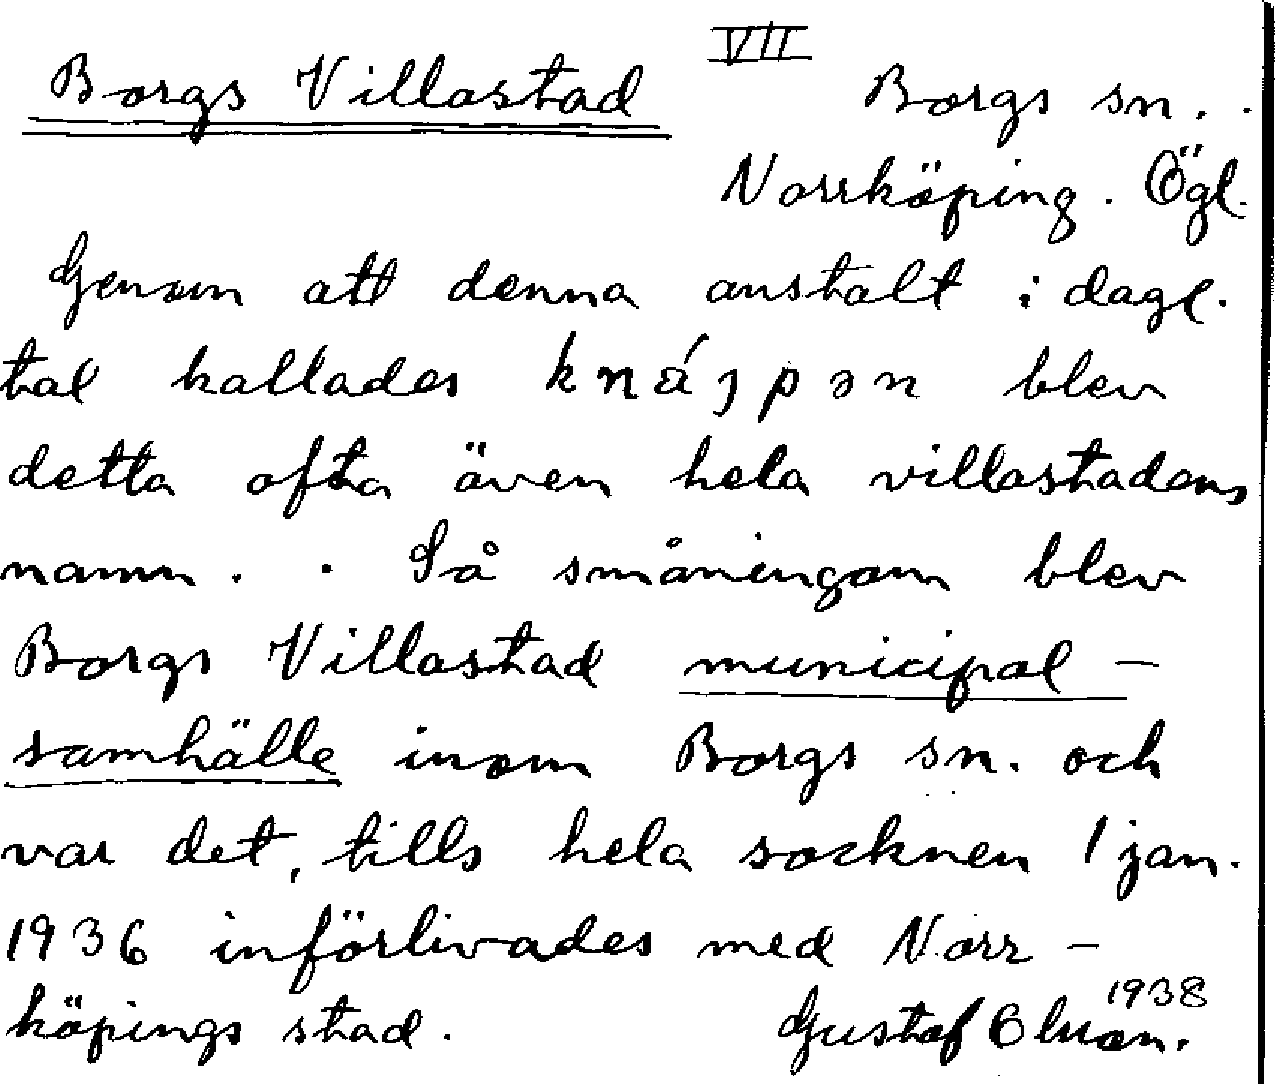 VII
Borgs Villastad Borgs sn.
Norrköping. Ögl.
Genom att denna anstalt i dagl.
tal kallades knáɪpən blev
detta ofta även hela villastadens
namn. . Så småningom blev
Borgs Villastad municipal-
samhälle inom Borgs sn. och
var det, tills hela socknen 1 jan.
1936 införlivades med Norr-
köpings stad. Gustaf 1938